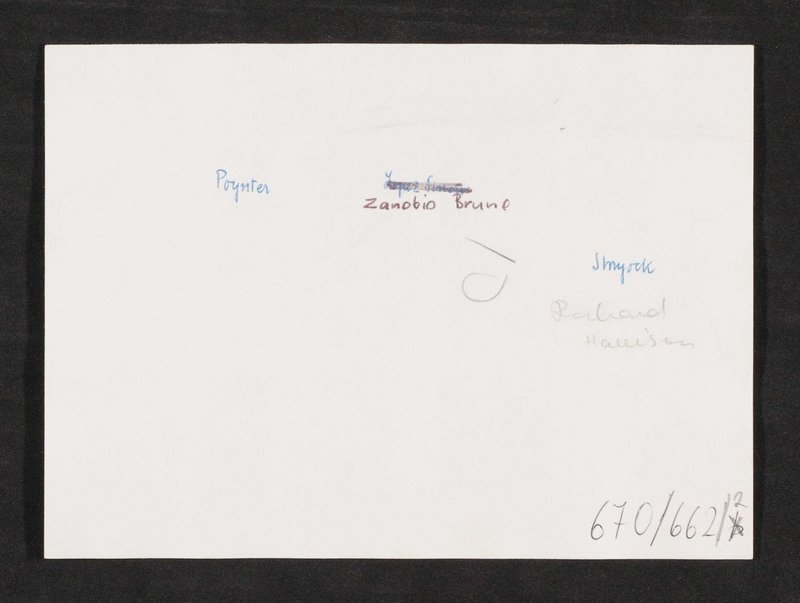 Poynter
Zanobio Brune
Richard
Harrison
670/662/12